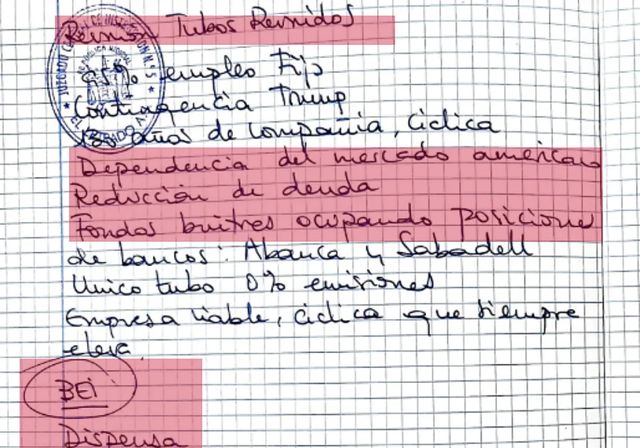 Reunión Tubos Reunidos
95% empleo Fijo
Contingencia Trump
130 años de compañia, ciclica
Dependencia del mercado americano
Reducción de deuda
Fondos buitres ocupando posiciones
de bancos: Abanca y Sabadell
Unico tubo 0% emisiones
Empresa viable, ciclica que siempre
eleva
BEi
Dispensa
JUZGADO CENTRAL DE INSTRUCCION N.º 5